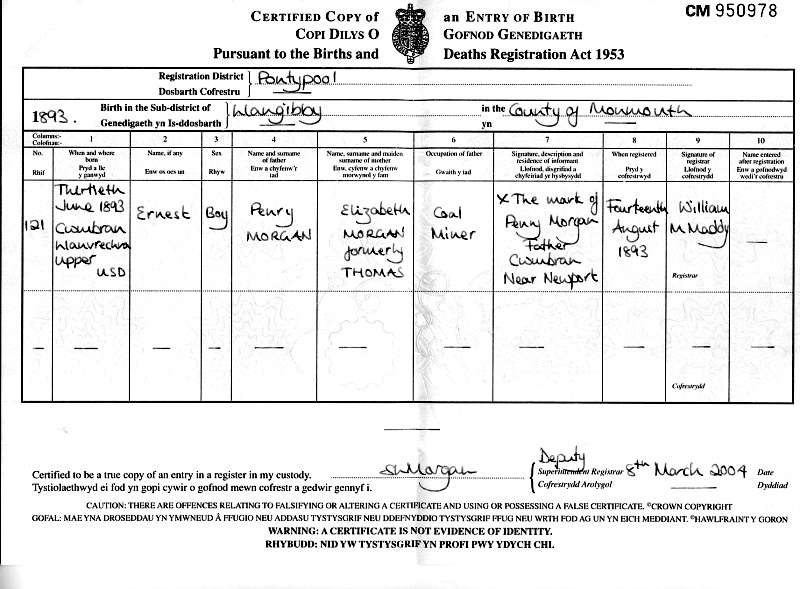 CERTIFIED COPY of an ENTRY OF BIRTH
COPI DILYS O GOFNOD GENEDIGAETH
Pursuant to the Births and Deaths Registration Act 1953
CM 950978
Registration District Pontypool
Dosbarth Cofrestru
1893. Birth in the Sub-district of Llangibby in the County of Monmouth
Genedigaeth yn Is-ddosbarth yn
Columns:- 1 2 3 4 5 6 7 8 9 10
Colofnau:-
No. When and where born Name, if any Sex Name and surname of father Name, surname and maiden surname of mother Occupation of father Signature, description and residence of informant When registered Signature of registrar Name entered after registration
Rhif Pryd a lle y ganwyd Enw os oes un Rhyw Enw a chyfenw'r tad Enw, cyfenw a chyfenw morwynol y fam Gwaith y tad Llofnod, disgrifiad a chyfeiriad yr hysbysydd Pryd y cofrestrwyd Llofnod y cofrestrydd Enw a gofnodwyd wedi'r cofrestru
121
Thirtieth
June 1893
Cwmbran
Llanvrechva
Upper
USD
Ernest
Boy
Penry
MORGAN
Elizabeth
MORGAN
formerly
THOMAS
Coal
Miner
X The mark of
Penry Morgan
Father
Cwmbran
Near Newport
Fourteenth
August
1893
William
M Maddy
Registrar
Cofrestrydd
Certified to be a true copy of an entry in a register in my custody.
Tystiolaethwyd ei fod yn gopi cywir o gofnod mewn cofrestr a gedwir gennyf i.
Morgan
Deputy
Superintendent Registrar
Cofrestrydd Arolygol
8th March 2004 Date
Dyddiad
CAUTION: THERE ARE OFFENCES RELATING TO FALSIFYING OR ALTERING A CERTIFICATE AND USING OR POSSESSING A FALSE CERTIFICATE. ©CROWN COPYRIGHT
GOFAL: MAE YNA DROSEDDAU YN YMWNEUD Â FFUGIO NEU ADDASU TYSTYSGRIF NEU DDEFNYDDIO TYSTYSGRIF FFUG NEU WRTH FOD AG UN YN EICH MEDDIANT. ©HAWLFRAINT Y GORON
WARNING: A CERTIFICATE IS NOT EVIDENCE OF IDENTITY.
RHYBUDD: NID YW TYSTYSGRIF YN PROFI PWY YDYCH CHI.